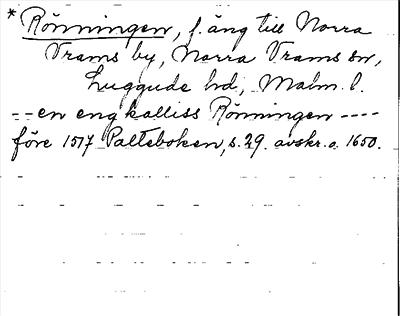 * Rönningen, f. äng till Norra
Vrams by, Norra Vrams sn,
Luggude hd, Malm. l.
-- en eng kalliss Rönningen ----
före 1517 Palteboken, s. 29. avskr. o. 1650.